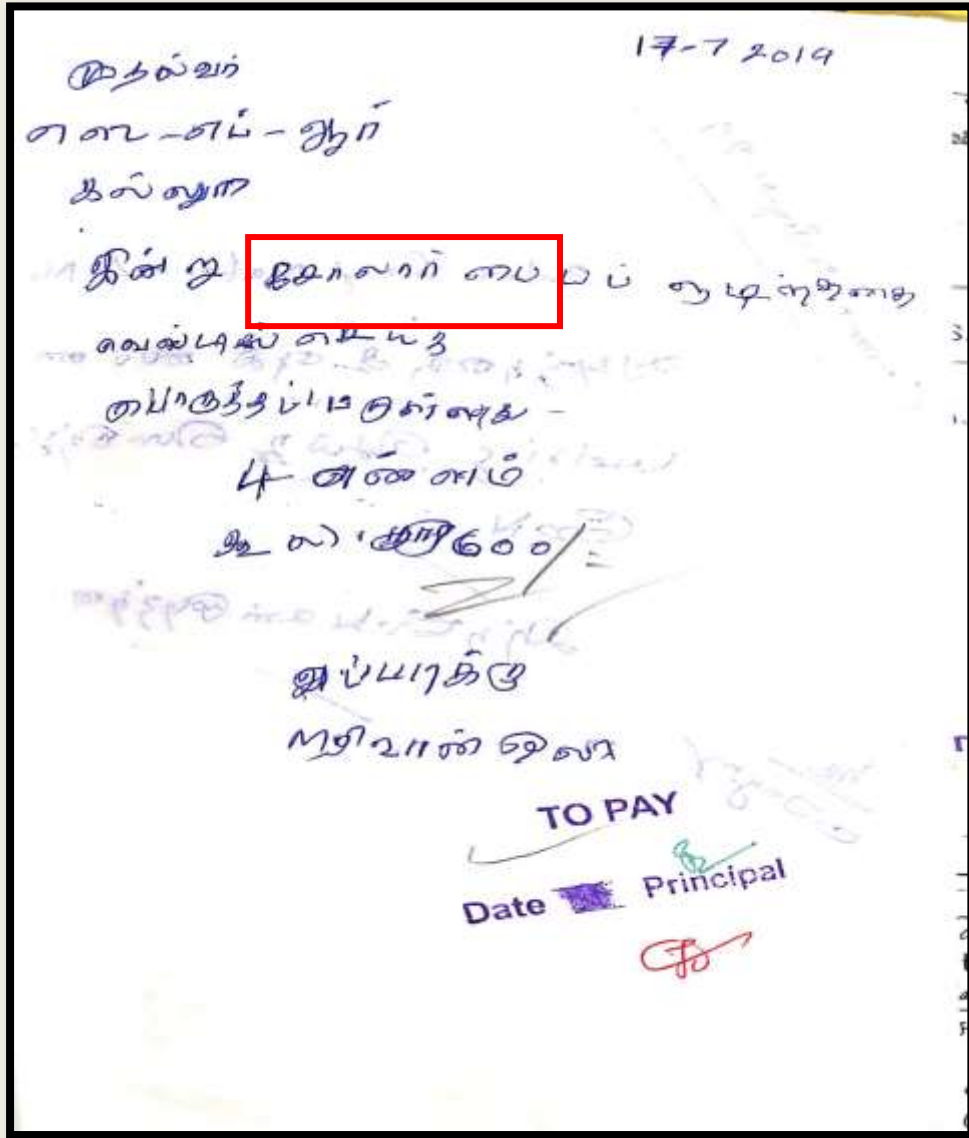 17-7 2019
முதல்வர்
எஸ்-எப்-ஆர்
கல்லூரி
இன்று சோலார் பைப்
வெல்டிங் செய்து
பொருத்தப்பட்டுள்ளது -
4 எண்ணம்
600/=
TO PAY
Date Principal